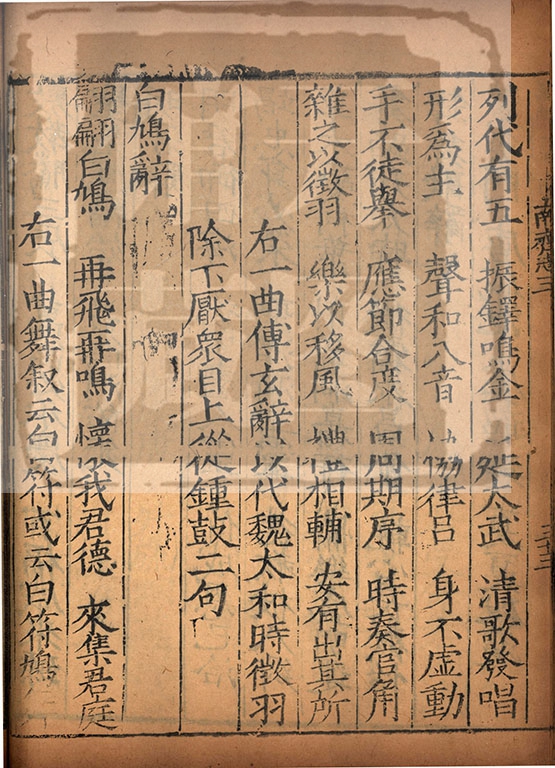 列代有五 振鐸鳴金 延大武 清歌發唱
形爲主 聲和八音 協律呂 身不虛動
手不徒舉 應節合度 周期序 時奏宮角
雜之以徵羽 樂以移風 禮相輔 安有出其所
右一曲傅玄辭以代魏太和時徵羽
除下厭衆目上從鍾鼓二句
白鳩辭
翩翩白鳩 再飛再鳴 懷我君德 來集君庭
右一曲舞叙云白符或云白符鳩
南齊志三
三十三